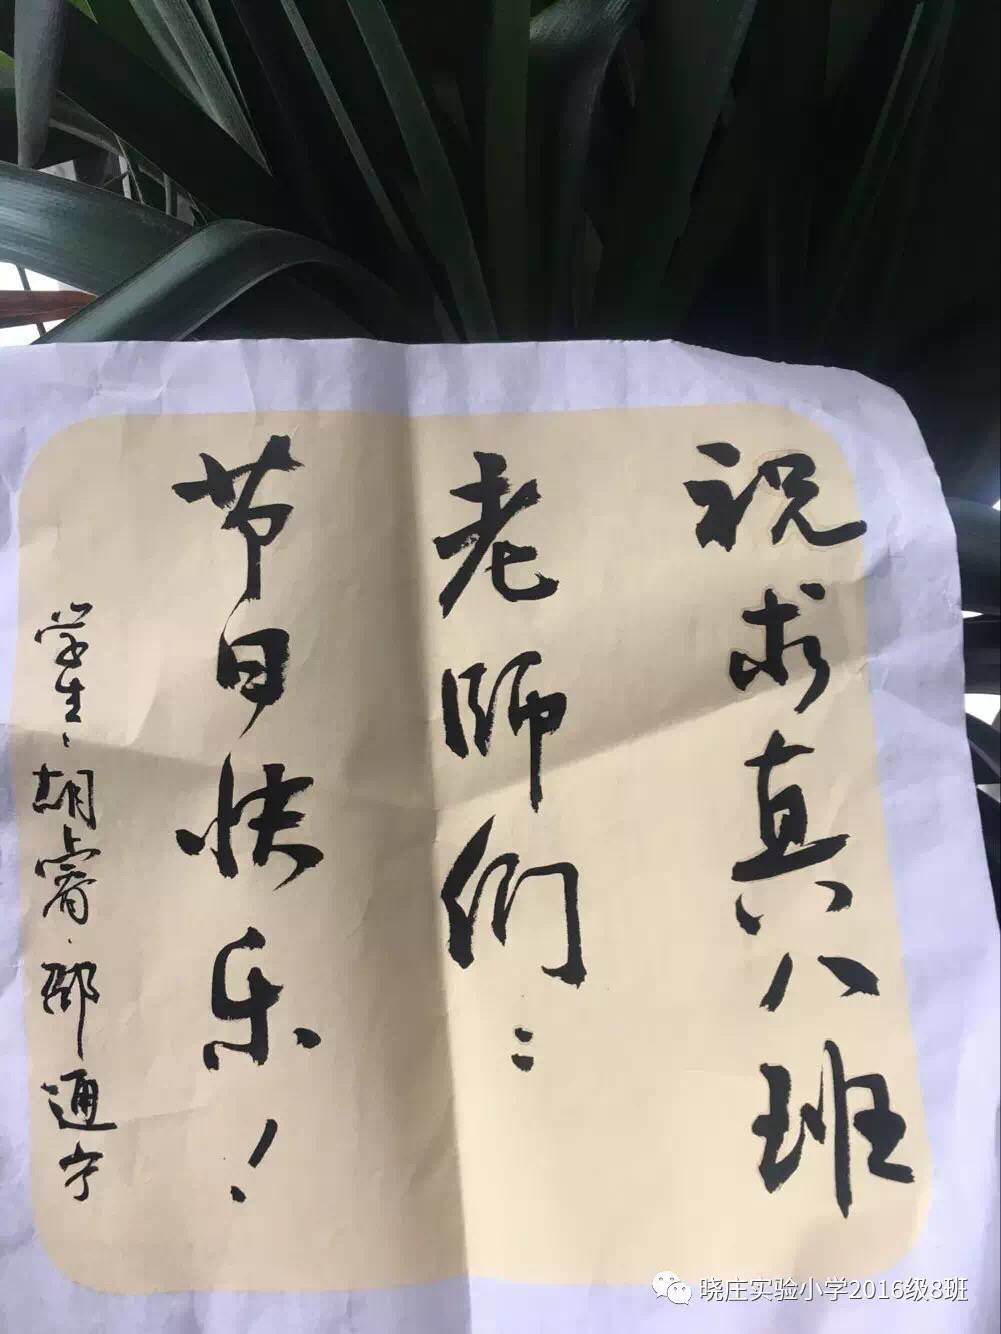 祝求真八班
老师们：
节日快乐！
学生：胡睿、邵通宁
晓庄实验小学2016级8班